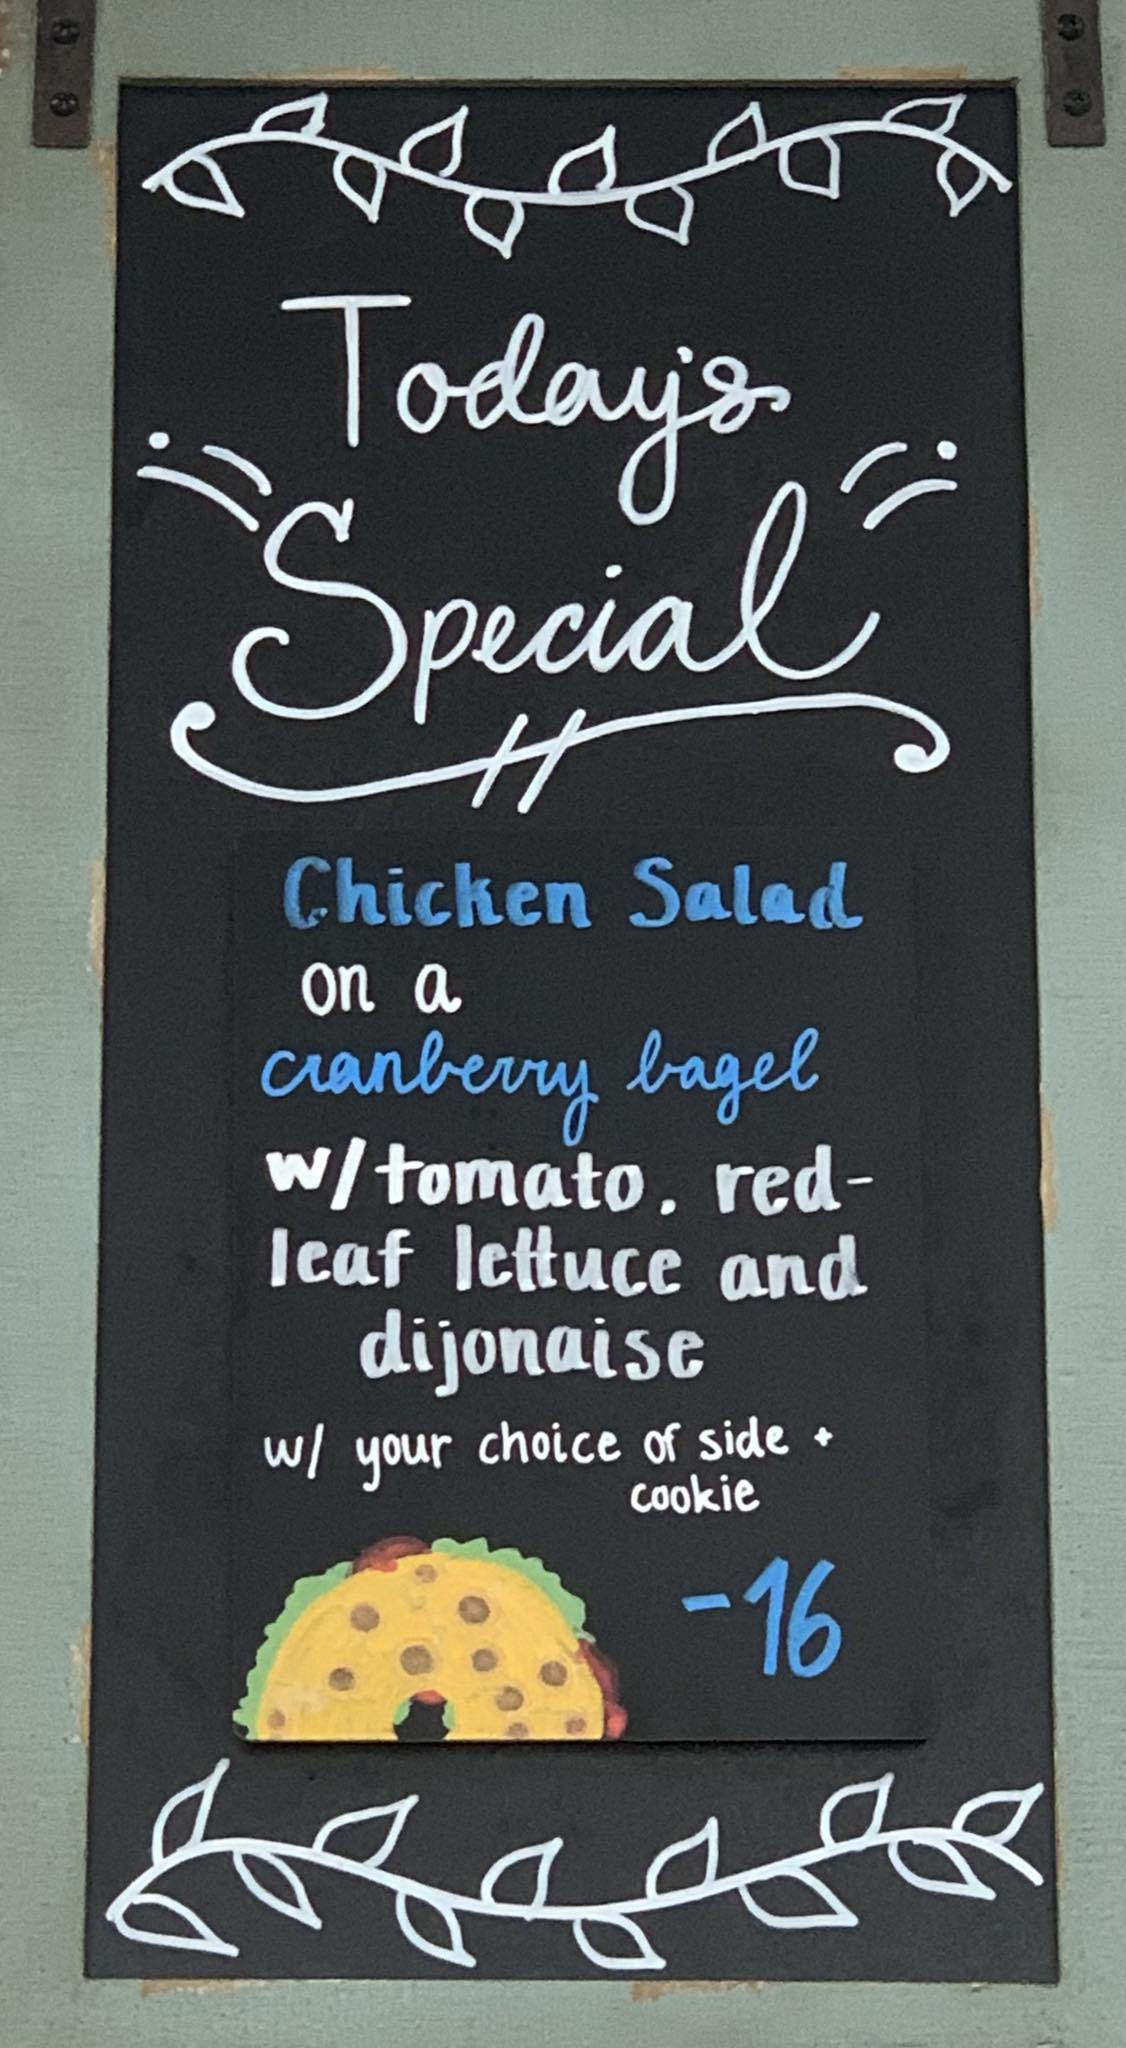 Today's
Special
Chicken Salad
on a
cranberry bagel
w/tomato. red-
leaf lettuce and
dijonaise
w/ your choice of side +
cookie
-16